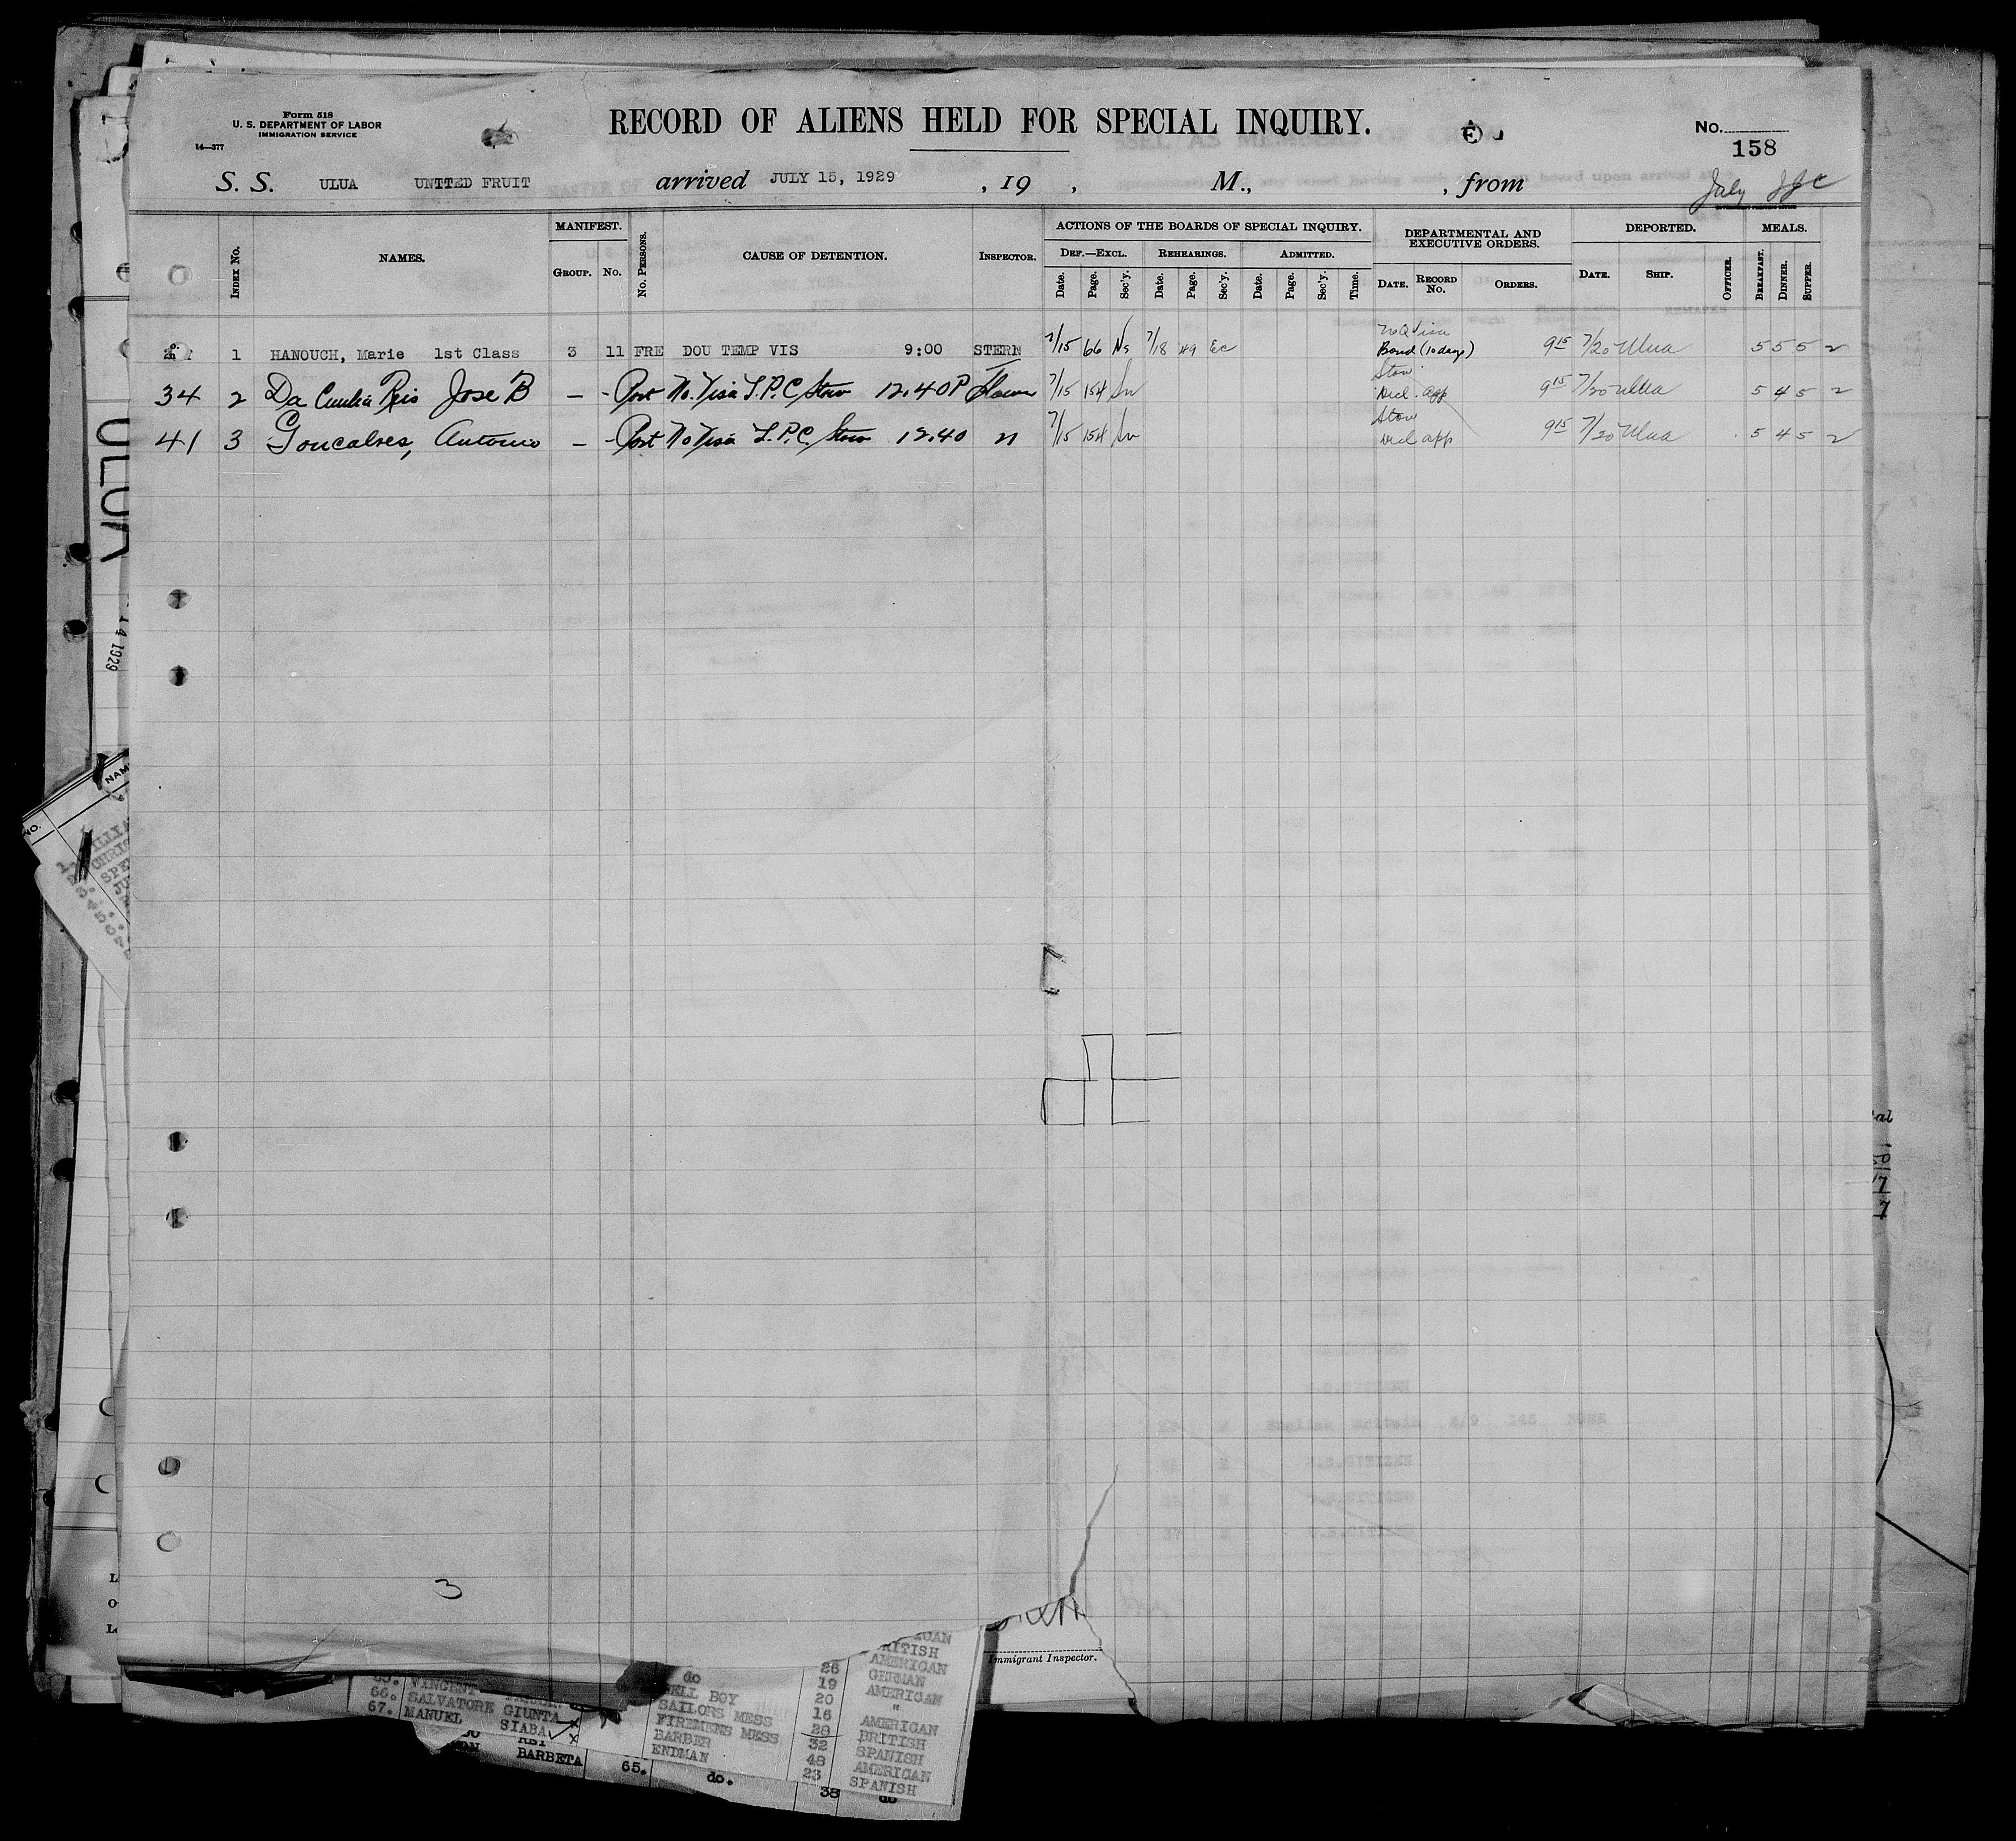 Form 518
U. S. DEPARTMENT OF LABOR
IMMIGRATION SERVICE
14—377
RECORD OF ALIENS HELD FOR SPECIAL INQUIRY.
E
No.
158
S. S. ULUA UNITED FRUIT arrived JULY 15, 1929 , 19 , M., , from
July
INDEX No. NAMES. MANIFEST. GROUP. No. No. PERSONS. CAUSE OF DETENTION. INSPECTOR.
ACTIONS OF THE BOARDS OF SPECIAL INQUIRY.
DEF.—EXCL. REHEARINGS. ADMITTED.
Date. Page. Sec'y. Date. Page. Sec'y. Date. Page. Sec'y. Time.
DEPARTMENTAL AND EXECUTIVE ORDERS.
DATE. RECORD No. ORDERS.
DEPORTED.
DATE. SHIP. OFFICER.
MEALS.
BREAKFAST. DINNER. SUPPER.
1 HANOUCH, Marie 1st Class 3 11 FRE DOU TEMP VIS 9:00 STERN 7/15 66 Ns 7/18 49 Ec Bond (10 days) 9 15 7/20 Ulua 5 5 5 2
34 2 Da Cunha Reis Jose B — - Port No Visa L.P.C. Stow 12.40P 7/15 154 Stow Decl. app 9 15 7/20 Ulua 5 4 5 2
41 3 Goncalves, Antonio — - Port No Visa L.P.C. Stow 12.40 " 7/15 154 Stow Decl app 9 15 7/20 Ulua 5 4 5 2
3
ULUA
14 1929
NO.
NAM
Immigrant Inspector.
66. SALVATORE GIUNTA
67. MANUEL SIABA
BARBETA 65. do. 38 do
do
BELL BOY
SAILORS MESS
FIREMENS MESS
BARBER
ENDMAN
26
19
20
16
28
32
48
23
BRITISH
AMERICAN
GERMAN
AMERICAN
"
AMERICAN
BRITISH
SPANISH
AMERICAN
SPANISH